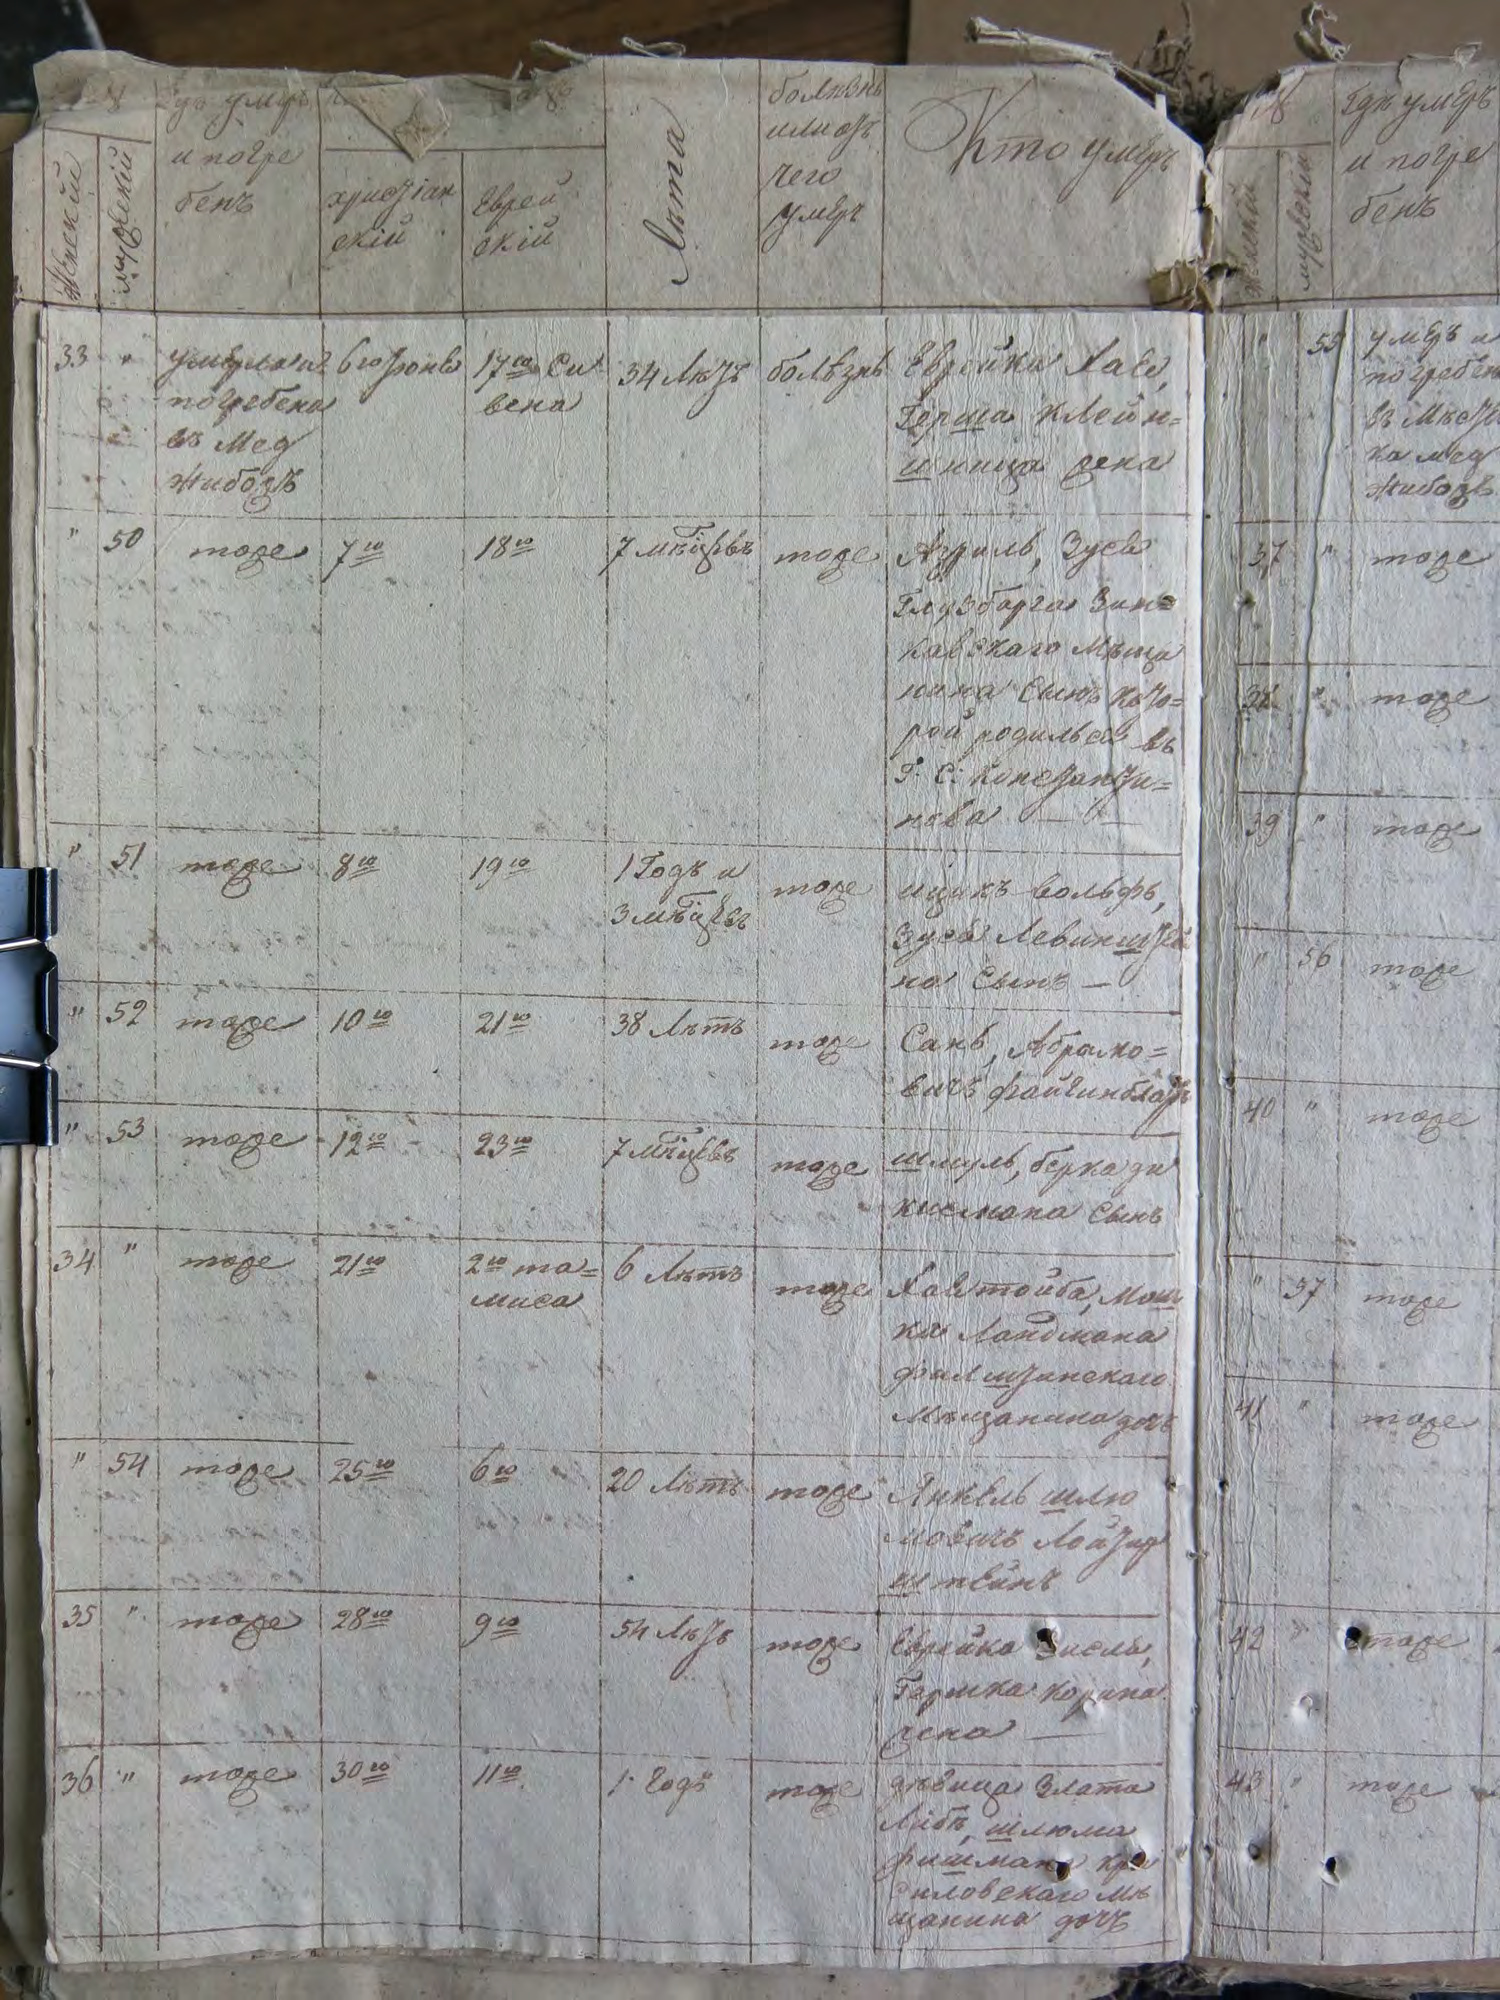 №
Гдѣ умеръ
и погре
бенъ
Женскій
мужескій
христіан
скій
Еврей
скій
Лѣта
болѣзнь
или отъ
чего
умеръ
Кто умеръ
33 " умерла и погребена въ Мед жибожѣ 6го Іюня 17го Си вена 34 Лѣтъ болѣзнь Еврейка Хая,
Герша Клейн=
шница жена
" 50 тоже 7го 18го 7 мѣсцевъ тоже Азриль, Зуся
Глузберга Зин=
кавскаго мѣща
нина сынъ кото=
рой родился въ
Г. С: Константи=
нова — —
" 51 тоже 8го 19го 1 Годъ и
3 мѣсцевъ тоже ицикъ вольфъ,
Зуся Левинштей
на сынъ —
" 52 тоже 10го 21го 38 Лѣтъ тоже Абрамо=
вичъ
" 53 тоже 12го 23го 7 мѣсцевъ тоже шмуль, берка
сынъ
34 " тоже 21го 2го та=
миса 6 Лѣтъ тоже Хая тойба, Мош
ка Ландмана
фалштинскаго
мѣщанина дочь
" 54 тоже 25го 6го 20 Лѣтъ тоже Янкель шлю
мовичъ
штейнъ
35 " тоже 28го 9го 54 Лѣтъ тоже Еврейка
Гершка
жена —
36 " тоже 30го 11го 1 годъ тоже дѣвица Злата
Либа, шлюма
фишмана кра
силовскаго мѣ
щанина дочь
№
Женскій
мужескій
Гдѣ умеръ
и погре
бенъ
" 55 умеръ и
погребенъ
въ мѣсте
ка мед
жибожѣ
37 " тоже
38 " тоже
39 " тоже
" 56 тоже
40 " тоже
" 57 тоже
41 " тоже
42 " тоже
43 " тоже